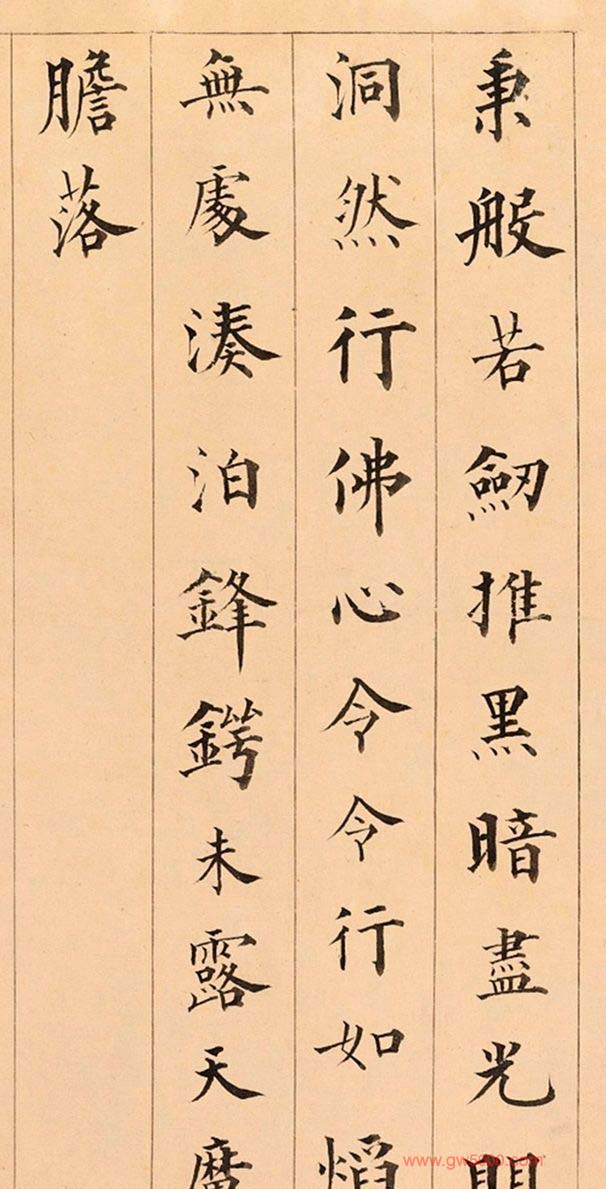 秉般若劒推黑暗盡光明
洞然行佛心令令行如熖
無處湊泊鋒鍔未露天魔
膽落